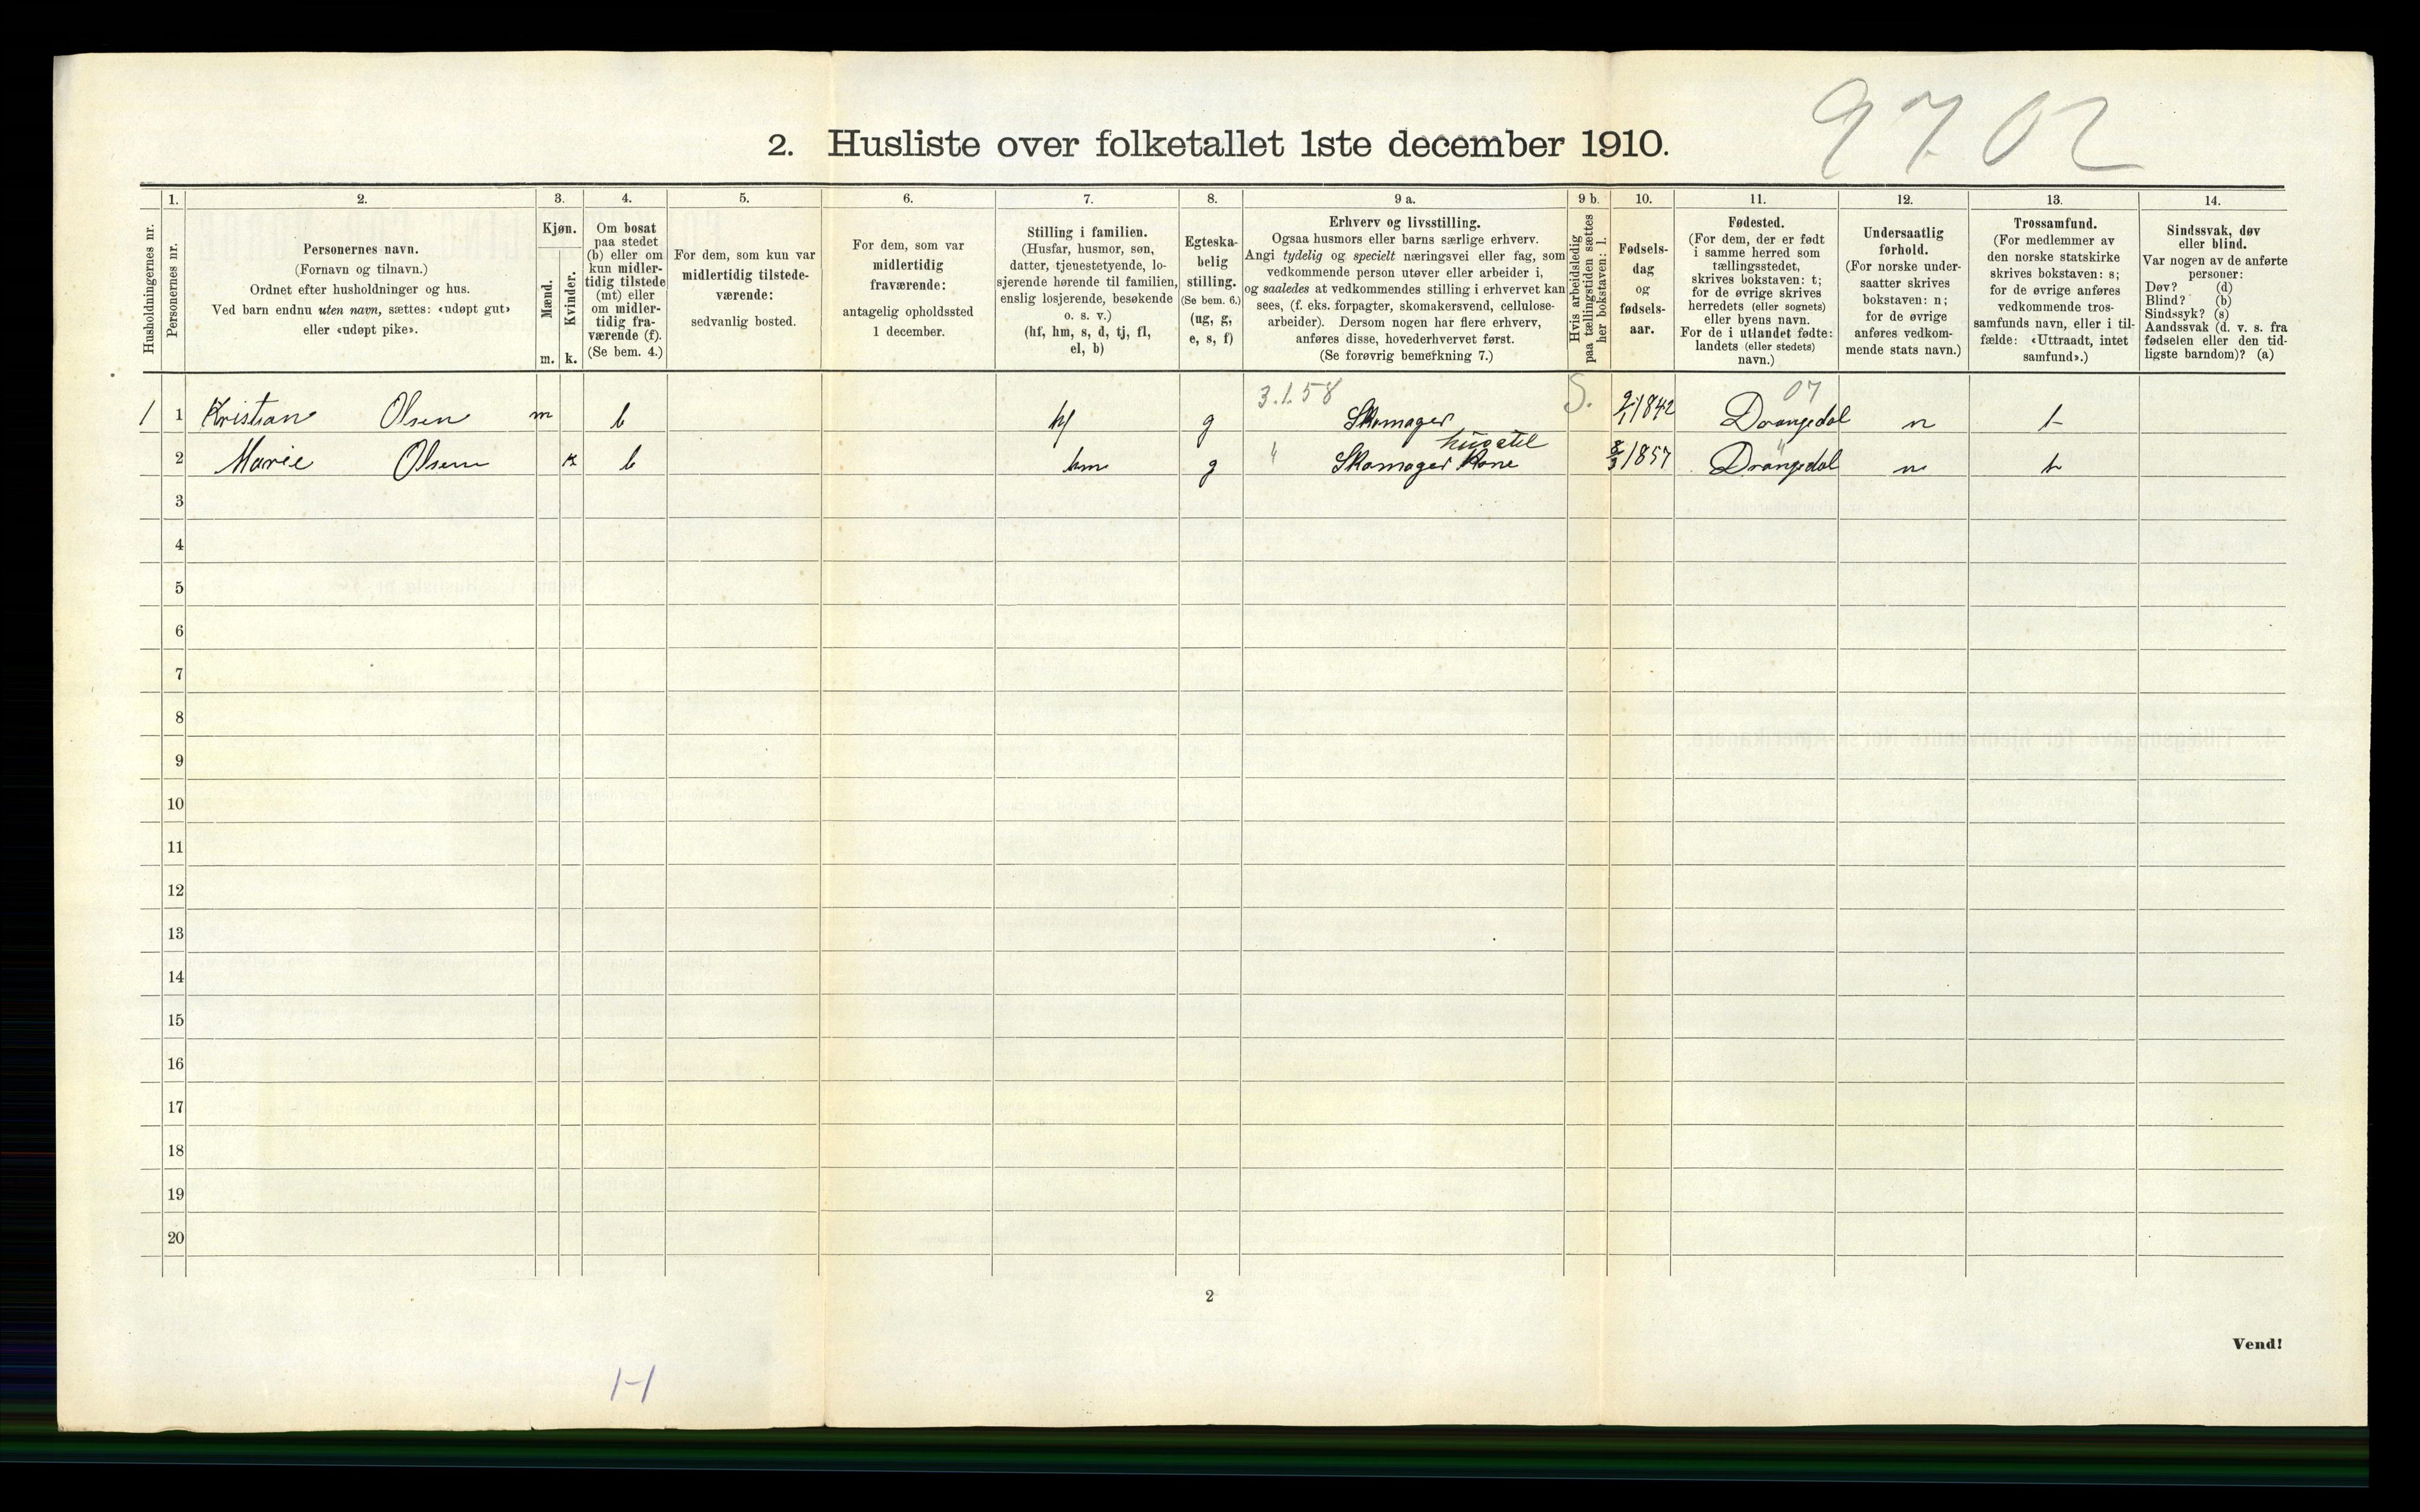 9702
2. Husliste over folketallet 1ste december 1910.
Husholdningernes nr.
1.
Personernes nr.
2.
Personernes navn.
(Fornavn og tilnavn.)
Ordnet efter husholdninger og hus.
Ved barn endnu uten navn, sættes: «udøpt gut»
eller «udøpt pike».
3.
Kjøn.
Mænd.
Kvinder.
m. k.
4.
Om bosat
paa stedet
(b) eller om
kun midler-
tidig tilstede
(mt) eller
om midler-
tidig fra-
værende (f).
(Se bem. 4.)
5.
For dem, som kun var
midlertidig tilstede-
værende:
sedvanlig bosted.
6.
For dem, som var
midlertidig
fraværende:
antagelig opholdssted
1 december.
7.
Stilling i familien.
(Husfar, husmor, søn,
datter, tjenestetyende, lo-
sjerende hørende til familien,
enslig losjerende, besøkende
o. s. v.)
(hf, hm, s, d, tj, fl,
el, b)
8.
Egteska-
belig
stilling.
(Se bem. 6.)
(ug, g,
e, s, f)
9 a.
Erhverv og livsstilling.
Ogsaa husmors eller barns særlige erhverv.
Angi tydelig og specielt næringsvei eller fag, som
vedkommende person utøver eller arbeider i,
og saaledes at vedkommendes stilling i erhvervet kan
sees, (f. eks. forpagter, skomakersvend, cellulose-
arbeider). Dersom nogen har flere erhverv,
anføres disse, hovederhvervet først.
(Se forøvrig bemerkning 7.)
9 b.
Hvis arbeidsledig
paa tællingstiden sættes
her bokstaven: l.
10.
Fødsels-
dag
og
fødsels-
aar.
11.
Fødested.
(For dem, der er født
i samme herred som
tællingsstedet,
skrives bokstaven: t;
for de øvrige skrives
herredets (eller sognets)
eller byens navn.
For de i utlandet fødte:
landets (eller stedets)
navn.)
12.
Undersaatlig
forhold.
(For norske under-
saatter skrives
bokstaven: n;
for de øvrige
anføres vedkom-
mende stats navn.)
13.
Trossamfund.
(For medlemmer av
den norske statskirke
skrives bokstaven: s;
for de øvrige anføres
vedkommende tros-
samfunds navn, eller i til-
fælde: «Uttraadt, intet
samfund».)
14.
Sindssvak, døv
eller blind.
Var nogen av de anførte
personer:
Døv? (d)
Blind? (b)
Sindssyk? (s)
Aandssvak (d. v. s. fra
fødselen eller den tid-
ligste barndom)? (a)
3.1.58 S. 07
1 1 Kristian Olsen m b hf g Skomager 1842 Drangedal n
husstel
2 Marie Olsen k b hm g " Skomager Kone 8/3 1857 Drangedal n
3
4
5
6
7
8
9
10
11
12
13
14
15
16
17
18
19
20
2
Vend!
1-1